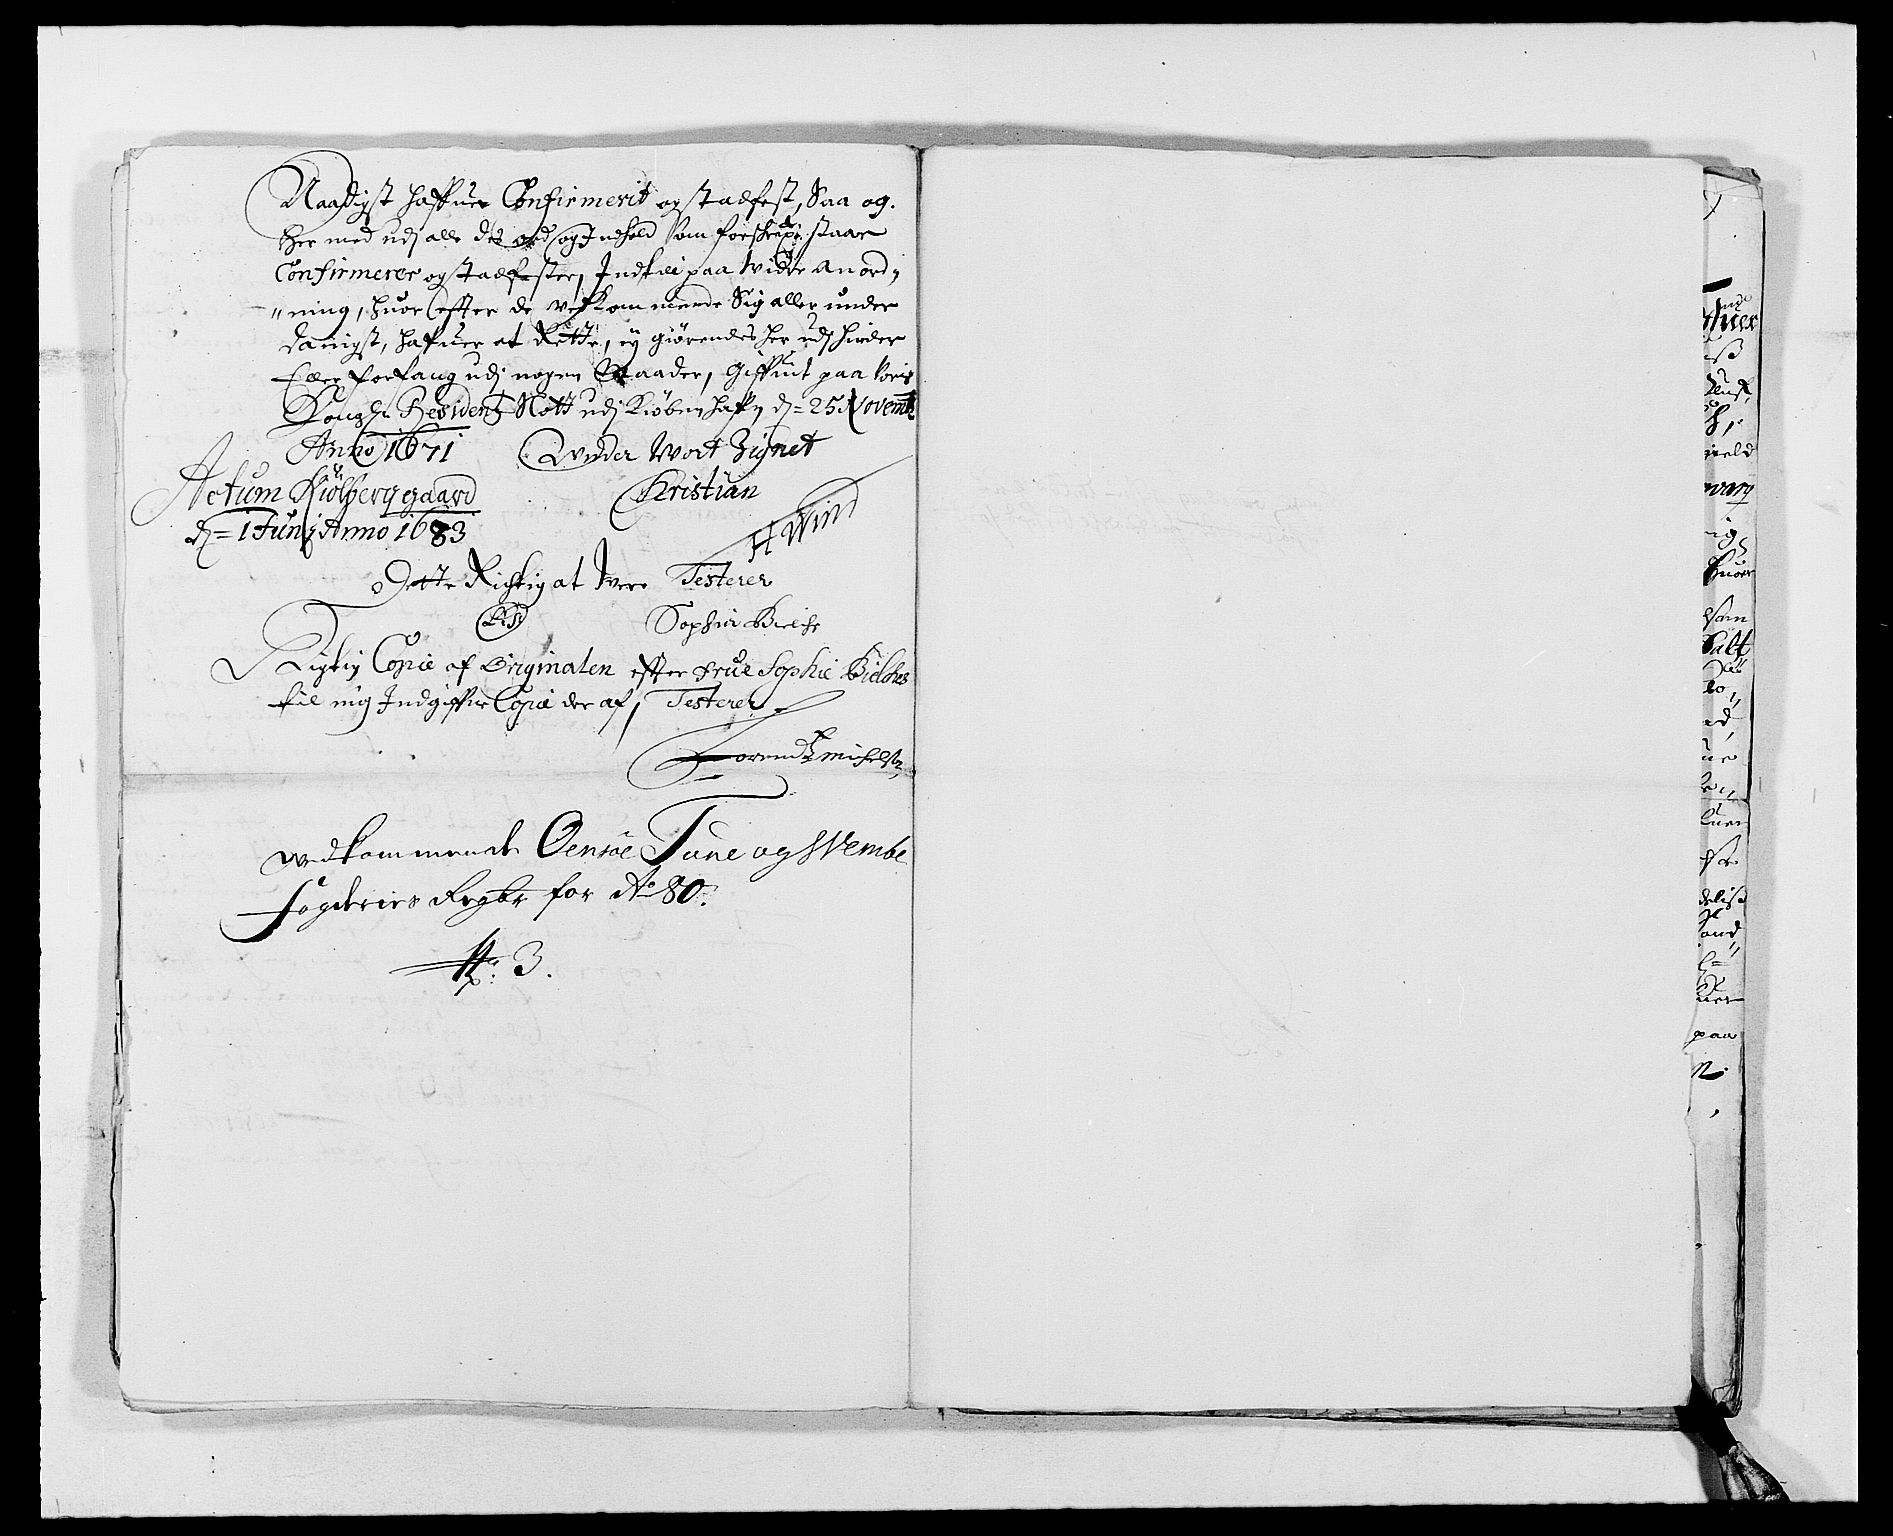 Naadigst haffuer Confirmerit og stadfest, Saa og.
her med udj alle des ord og Indhold som forschrefn: staar
Confirmerer og stadfester, Indtil paa widre anord,
„ning, huor efter de vedkommende Sig aller under
danigst, hafuer at Rette, ey giörendes her udj hinder
Eller forfang udj nogen Maader, Giffuit paa voris
Kongl: Residentz Slott udj Kiøbenhafn d= 25 Novemb:
Anno 1671 Under Wort Zignet
Actum Kiölbergegaard Kristian
d= 1 Junj Anno 1683 H Wind
Dette Richtig at were Testerer
(LS) Sophia Bielche
Rigtig Copie af Originalen efter frue Sophie Bielches
til mig Indgiffne Copie der af, Testerer
wedkommende Oensöe Tune og Wembe
fogderies Regbr for Ao 80.
No: 3.